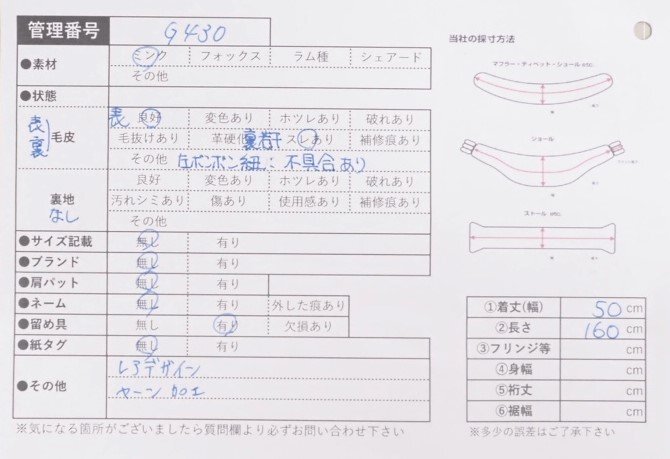 管理番号 G430
●素材 ミンク フォックス ラム種 シェアード
その他
●状態
表 裏 毛皮 表 良好 変色あり ホツレあり 破れあり
毛抜けあり 革硬化 裏若干 スレあり 補修痕あり
その他 左ポンポン紐:不具合あり
裏地 なし 良好 変色あり ホツレあり 破れあり
汚れシミあり 傷あり 使用感あり 補修痕あり
その他
●サイズ記載 無し 有り
●ブランド 無し 有り
●肩パット 無し 有り
●ネーム 無し 有り 外した痕あり
●留め具 無し 有り 欠損あり
●紙タグ 無し 有り
●その他 レアデザイン
ヤーン加工
※気になる箇所がございましたら質問欄より必ずお問い合わせ下さい
当社の採寸方法
マフラー・ティペット・ショール etc.
ショール
ストール etc.
①着丈(幅) 50 cm
②長さ 160 cm
③フリンジ等 cm
④身幅 cm
⑤裄丈 cm
⑥裾幅 cm
※多少の誤差はご了承下さい